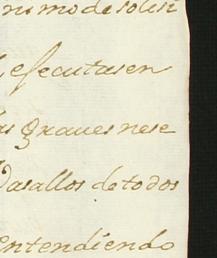 nimo de solisi
efecutasen
as graues nese
Vasallos de todos
entendiendo